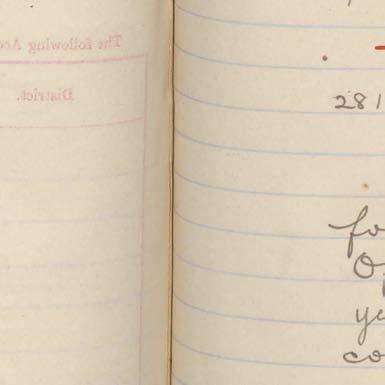 The following Acc
District.
281
fo
O
ye
co